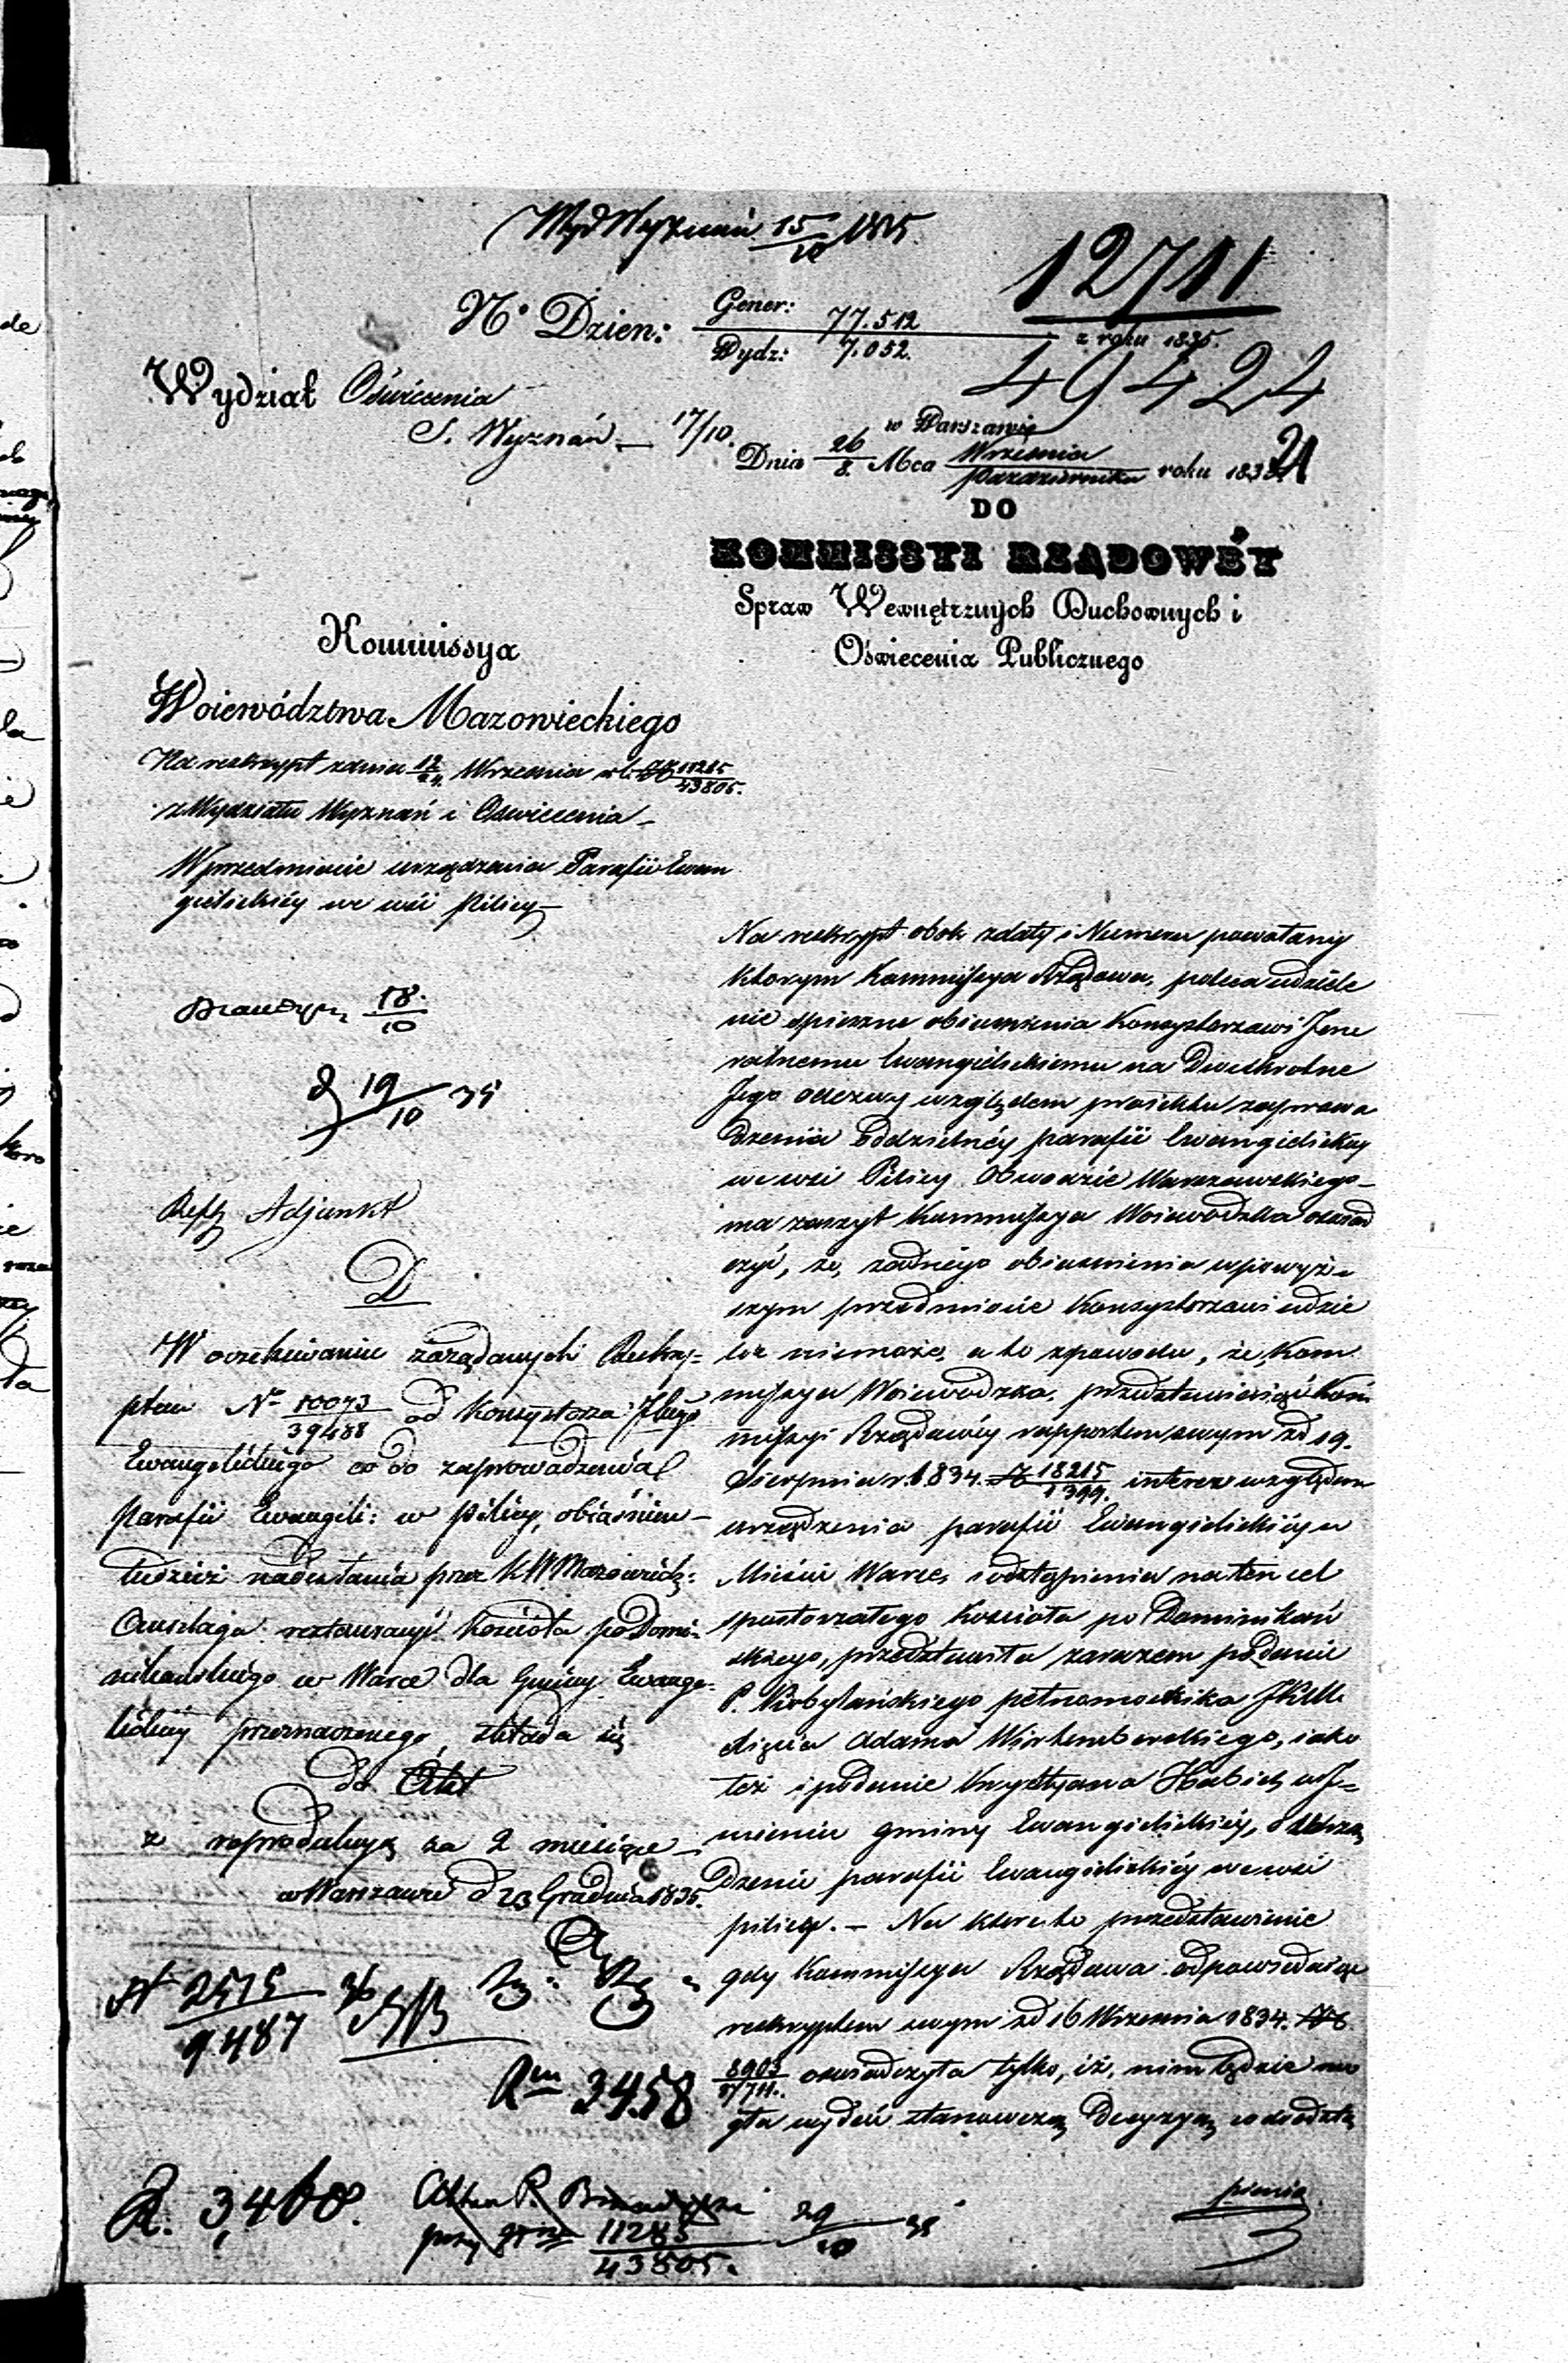 Wyd Wyznań 15/10 1835.
12711
No Dzien: Gener: 77.512
Wydz: 7.052.
z roku 1835.
49424
Wydział Oświecenia
S. Wyznań — 17/10.
w Warszawie
Dnia 26/8. Mca Września/Października roku 183
21
DO
KOMMISSYI RZĄDOWÉY
Spraw Wewnętrznych Duchownych i
Oświecenia Publicznego
Kommissya
Woiewództwa Mazowieckiego
Na reskrypt z dnia 12/24 Września r b. No 11285/43805.
z Wydziału Wyznań i Oświecenia —
W przedmiocie urządzenia Parafii Ewan
gielickiéy we wsi Pilicy —
18./10
19/10 35
Adjunkt
D
W oczekiwaniu zarządanych Reskry=
ptem No 10073/39488 od Konsystorza Jlnego
Ewangelickiego co do zaprowadzenia
Parafii Ewangeli: w Pilicy, obiaśnień —
tudzież nadesłania przez KWMazowieck:
Anszlagu restauracyi Kościoła po Domi=
nikańskiego w Warce dla Gminy Ewange=
lickiey przeznaczonego, składa się
do Akt
z reprodukcyą za 2 miesiące —
w Warszawie d 23 Grudnia 1835.
No 2515/9487 36
Rm 3458
R. 3460.
Akta P.
przy No 11285/43805. 29/10 35
Na reskrypt obok z daty i Numeru powołany
ktorym Kommissya Rządowa, poleca udziele
nie spieszne obiasnienia Konsystorzowi Jene
ralnemu Ewangielickiemu na Dwukrotne
Jego odezwy względem proiektu zaprowa
dzenia oddzielnéy parafii Ewangielickiey
we wsi Pilicy Obwodzie Warszawskiego —
ma zaszczyt Kommissya Woiewódzka oswiad
czyć, że, żadnego obiasnienia w powyż=
szym przedmiocie Konsystorzowi udzie
lić niemoże, a to z powodu, że Kom
missya Woiewódzka, przedstawiaiąc Kom
missyi Rządowéy rapportem swym z d 19.
Sierpnia r. 1834. No 18215/1399. interes względem
urządzenia parafii Ewangielickiéy w
Mieście Warce, i odstąpienia na ten cel
spustorzałego Kościoła po Dominikań
skiego, przedstawiła zarazem podanie
P. Kobylańskiego pełnomocnika JKM
Xięcia Adama Wirtemberskiego, iako
też i podanie Krystyana Habich w J=
mieniu gminy Ewangielickiéy, o urzą
dzenie parafii Ewangielickiéy we wsi
Pilicy. — Na które to przedstawienie
gdy Kommissya Rządowa odpowiadaiąc
reskryptem swym z d 16 Września 1834. No
8903/51711. oswiadczyła tylko, iż, nim będzie mo
gła wydać stanowczą Decyzyą, co do odstą
pienia